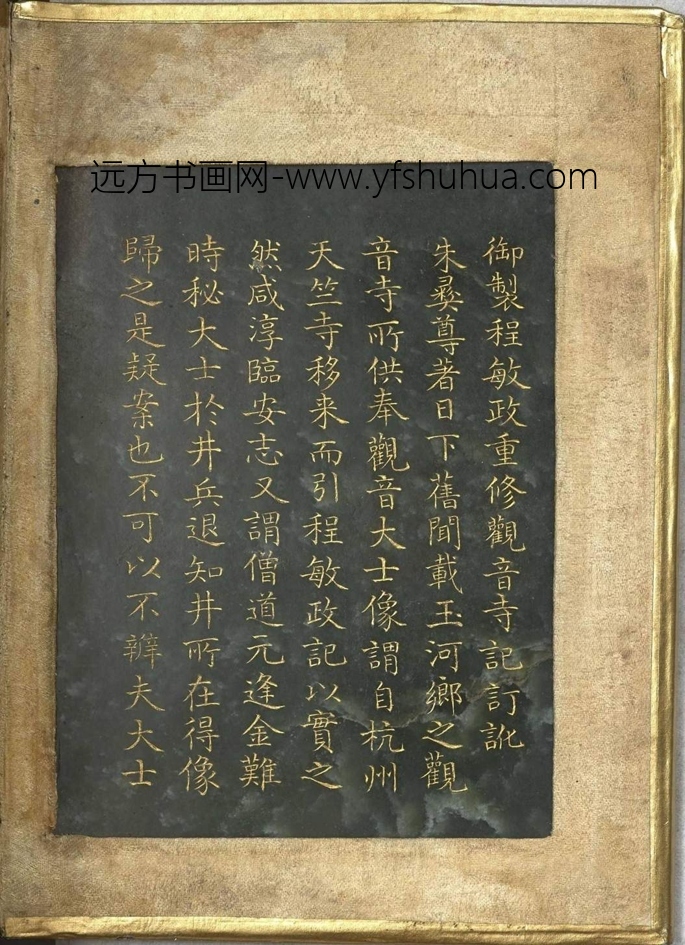 远方书画网-www.yfshuhua.com
御製程敏政重修觀音寺記訂訛
朱彝尊著日下舊聞載玉河鄉之觀
音寺所供奉觀音大士像謂自杭州
天竺寺移来而引程敏政記以實之
然咸淳臨安志又謂僧道元逢金難
時秘大士於井兵退知井所在得像
歸之是疑案也不可以不辨夫大士